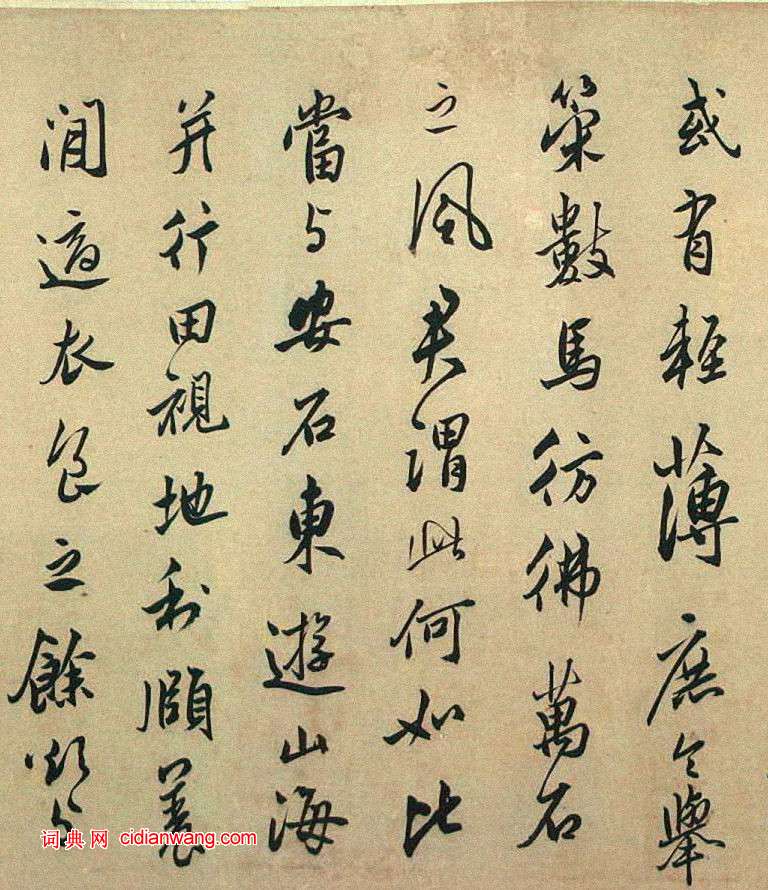 或有輕薄庶令舉
策數馬彷彿萬石
之風君謂此何如比
當与安石東遊山海
并行田視地利頤養
閒適衣食之餘欲与
词典网 cidianwang.com